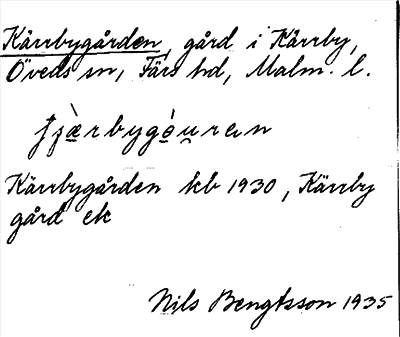 Kärrbygården, gård i Kärrby,
Öveds sn, Färs hd, Malm. l.
fjæ̀rbygé̱u̯ran
Kärrbygården kb 1930, Kärrby
gård ek
Nils Bengtsson 1935